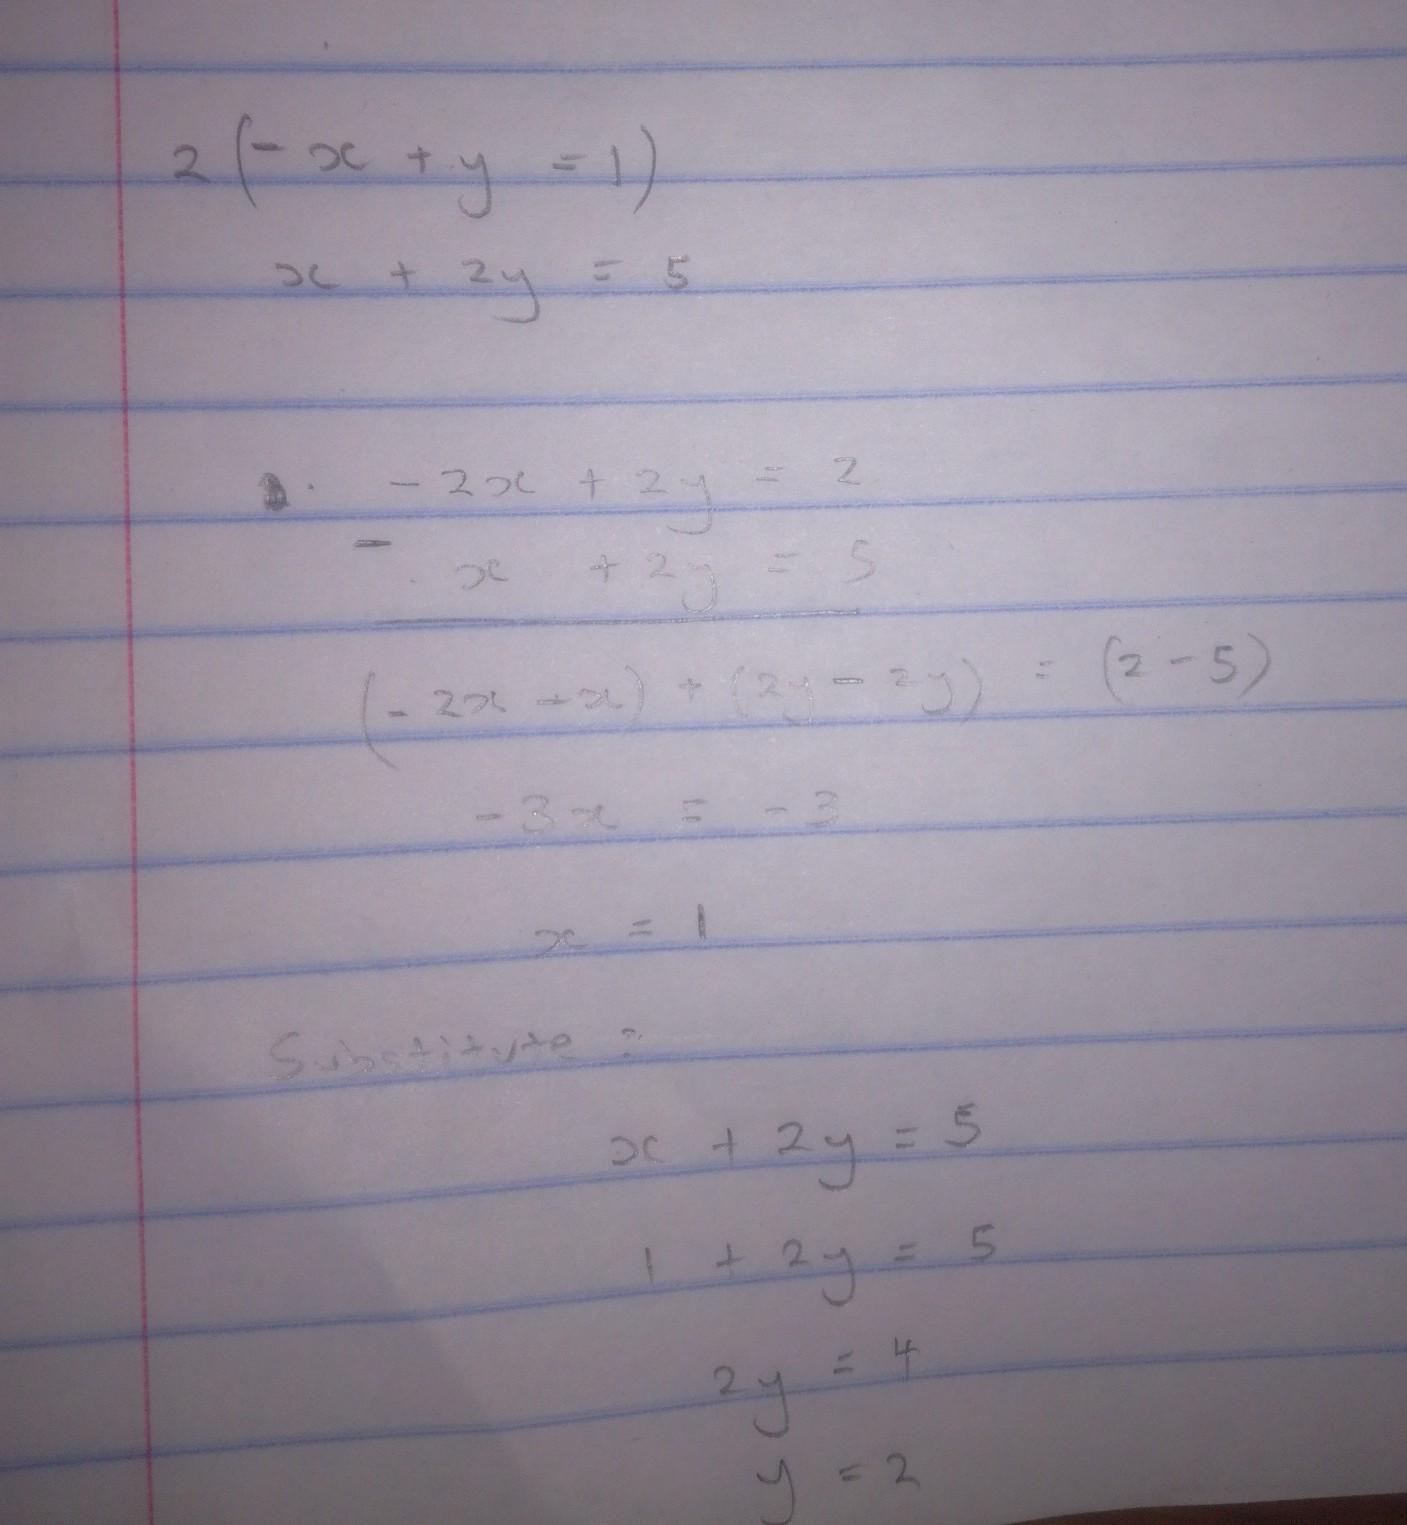 2(-x + y = 1)
x + 2y = 5
. -2x + 2y = 2
- x + 2y = 5
(-2x - x) + (2y - 2y) = (2 - 5)
-3x = -3
x = 1
Substitute :
x + 2y = 5
1 + 2y = 5
2y = 4
y = 2